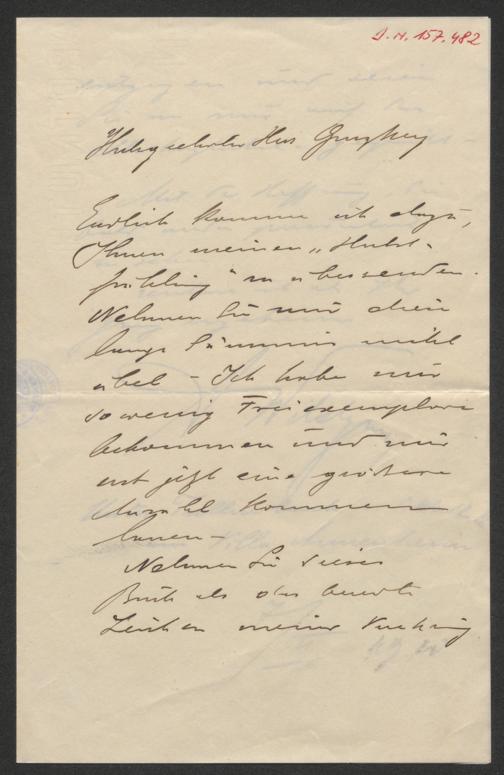 I.N. 157.482
Hochgeehrter Herr Ginzkey
Endlich komme ich dazu,
Ihnen meinen „Herbst-
frühling" zu übersenden.
Nehmen Sie mir dies
lange Säumnis nicht
übel – Ich habe nur
so wenig Freiexemplare
bekommen und mir
erst jetzt eine größere
Anzahl kommen
lassen –
Nehmen Sie dieses
Buch als das
Zeichen meiner Verehrung